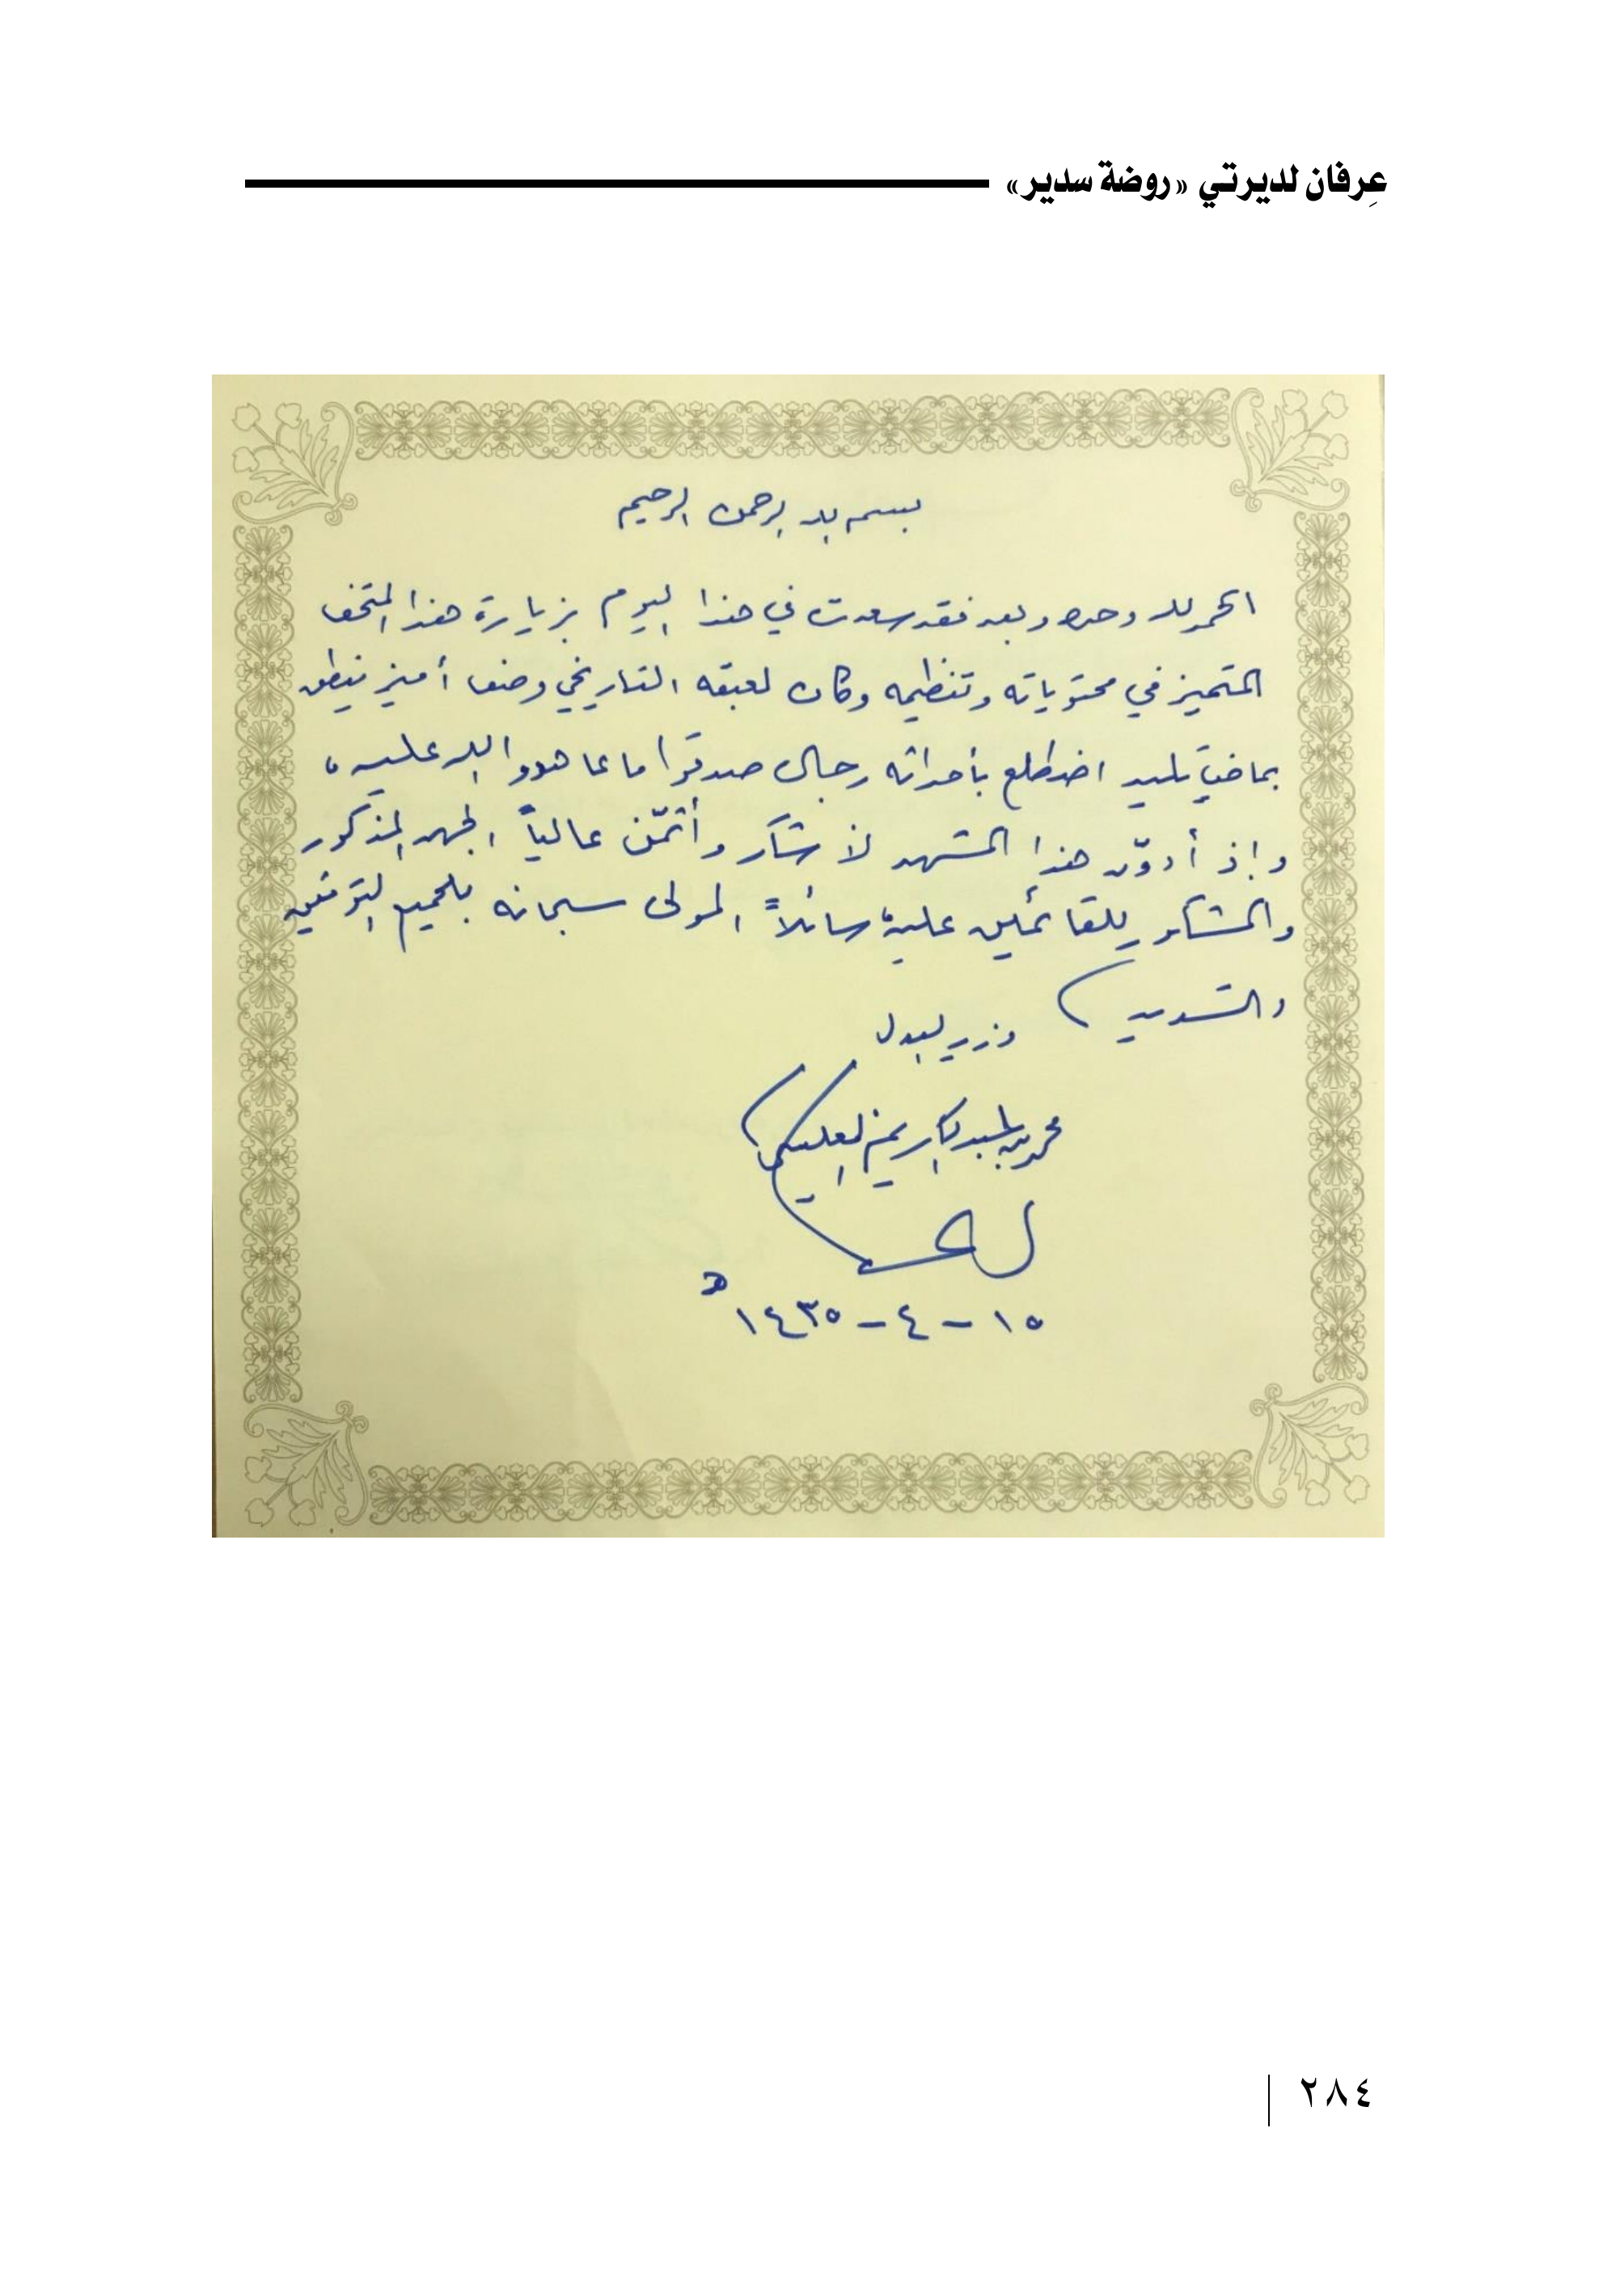 عِرفان لديرتي «روضة سدير»
بسم الله الرحمن الرحيم
الحمد لله وحده وبعد فقد سعدت في هذا اليوم بزيارة هذا المتحف
المتميز في محتوياته وتنظيمه وكان لعبقه التاريخي وصف أميز ينطق
بماضٍ تليد اضطلع بأحداثه رجال صدقوا ما عاهدوا الله عليه،
وإذ أدوّن هذا المشهد لأشكر وأثمّن عالياً الجهد المذكور
والمشكور للقائمين عليه سائلاً المولى سبحانه للجميع التوفيق
والتسديد وزير العدل
محمد بن عبدالكريم العيسى
١٥-٤-١٤٣٥ه
٢٨٤